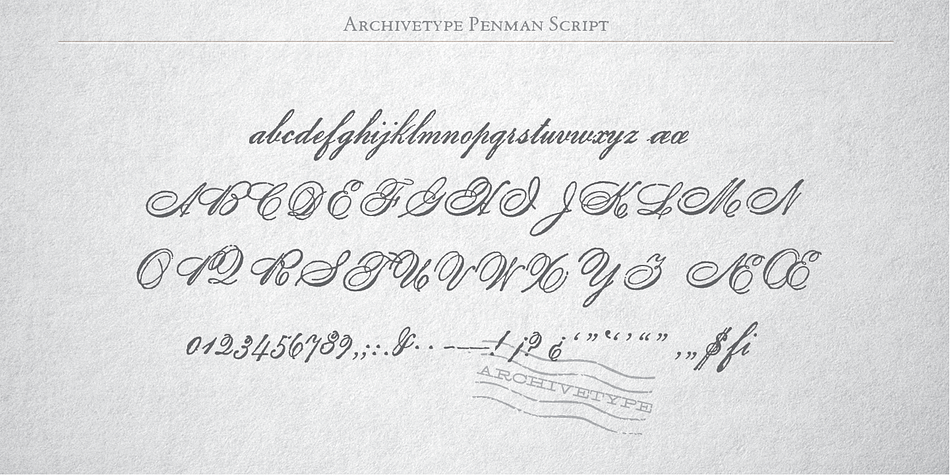 Archivetype Penman Script
abcdefghijklmnopqrstuvwxyz æœ
ABCDEFGHIJKLMN
OPQRSTUVWXYZ ÆŒ
0123456789,;:.&·-–—!¡?¿‘”“‘’“”‚„$fi
ARCHIVETYPE